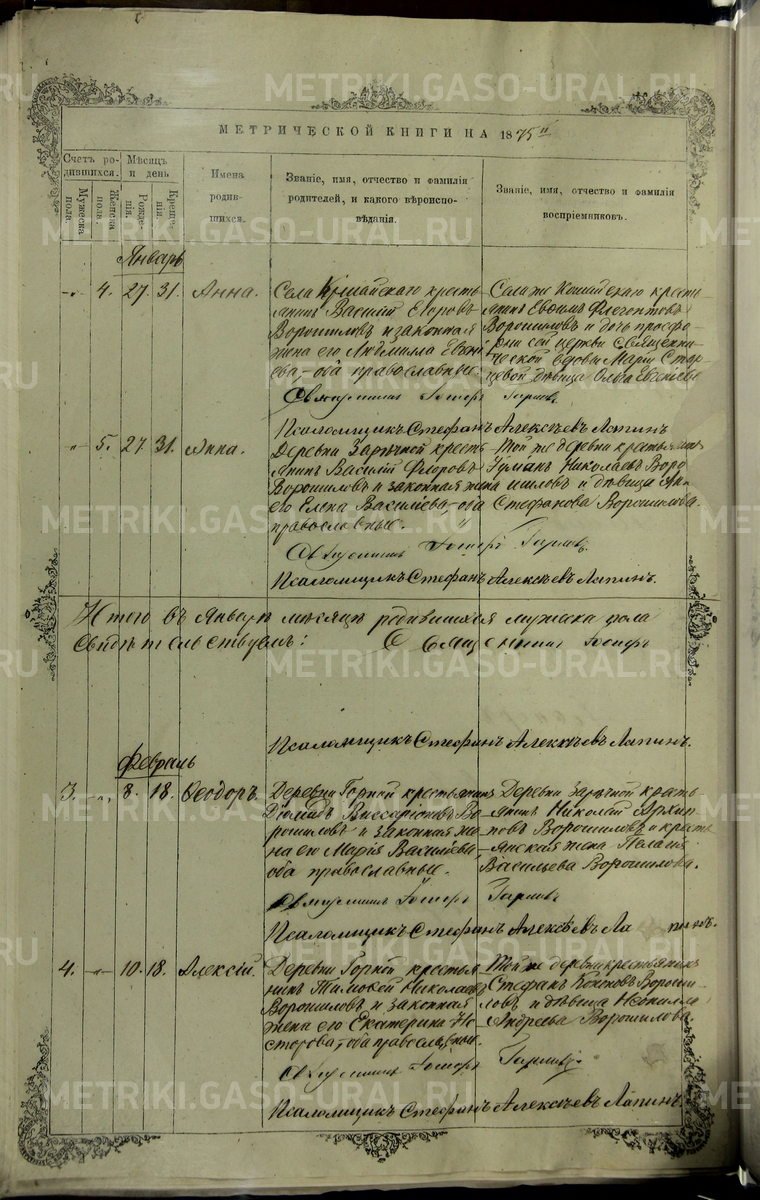 МЕТРИЧЕСКОЙ КНИГИ НА 1875
Счетъ родившихся.
Мужеска пола.
Женска пола.
Мѣсяцъ и день
Рожденія.
Крещенія.
Имена родившихся.
Званіе, имя, отчество и фамилія родителей, и какого вѣроисповѣданія.
Званіе, имя, отчество и фамилія воспріемниковъ.
Январь
4. 27. 31. Анна.
Села крестьянинъ Василій Егоровъ
Ворошиловъ и законная
жена его Людмила
ева, оба православные.
Села же крестьянинъ Евѳимъ
Ворошиловъ и дочь просфорни сей церкви священнической вдовы Маріи
дѣвица Ольга Евгеніева
Псаломщикъ Стефанъ Алексѣевъ Лапинъ
5. 27. 31. Анна.
Деревни Зарѣчной крестьянинъ Василій Флоровъ
Ворошиловъ и законная жена
его Елена Васильева, оба
православные.
Той же деревни крестьянинъ
Николаевъ Ворошиловъ и дѣвица
Стефанова Ворошилова.
Псаломщикъ Стефанъ Алексѣевъ Лапинъ.
Итого въ Январѣ мѣсяцѣ родившихся мужеска пола
Свидѣтельствуемъ: Священникъ
Псаломщикъ Стефанъ Алексѣевъ Лапинъ.
Февраль
3. 8. 18. Ѳеодоръ.
Деревни Горной крестьянинъ
Діомидъ Виссаріоновъ Ворошиловъ и законная жена его Марія Васильева,
оба православные.
Деревни Зарѣчной крестьянинъ Николай Архиповъ Ворошиловъ и крестьянская жена Пелагія
Васильева Ворошилова.
Псаломщикъ Стефанъ Алексѣевъ Лапинъ.
4. 10. 18. Алексій.
Деревни Горной крестьянинъ Тимоѳей Николаевъ
Ворошиловъ и законная
жена его Екатерина Несторова, оба православные.
Той же деревни крестьянинъ
Стефанъ Ворошиловъ и дѣвица Неонилла
Андреева Ворошилова.
Псаломщикъ Стефанъ Алексѣевъ Лапинъ.
METRIKI.GASO-URAL.RU